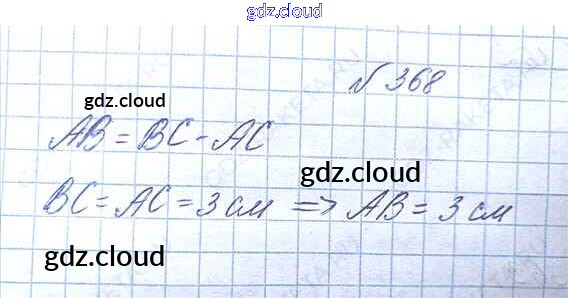 gdz.cloud
№ 368
gdz.cloud
AB = BC - AC
gdz.cloud
BC = AC = 3 см => AB = 3 см
gdz.cloud